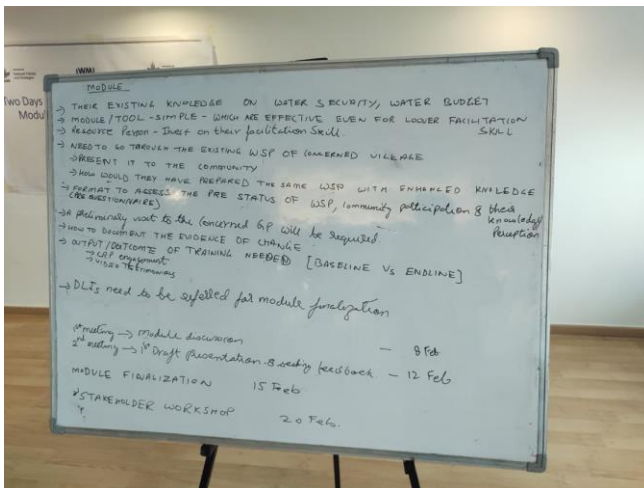 IWMI
Two Days
Modul
MODULE
→ THEIR EXISTING KNOWLEDGE ON WATER SECURITY, WATER BUDGET
→ MODULE / TOOL - SIMPLE - WHICH ARE EFFECTIVE EVEN FOR LOWER FACILITATION SKILL
→ Resource Person - Invest on their facilitation skill.
→ NEED TO GO THROUGH THE EXISTING WSP OF CONCERNED VILLAGE
→ PRESENT IT TO THE COMMUNITY
→ HOW WOULD THEY HAVE PREPARED THE SAME WSP WITH ENHANCED KNOWLEDGE
→ FORMAT TO ASSESS THE PRE STATUS OF WSP, Community participation & their knowledge/
(PRE QUESTIONNAIRE) Perception
→ A preliminary visit to the concerned GP will be required.
→ HOW TO DOCUMENT THE EVIDENCE OF CHANGE.
→ OUTPUT/OUTCOME OF TRAINING NEEDED [BASELINE VS ENDLINE]
→ engagement
→ VIDEO Testimonials
→ DLIs need to be refelled for module finalization
1st meeting → Module discussion — 8 Feb
2nd meeting → 1st Draft presentation & seeking feedback. — 12 Feb
MODULE FINALIZATION 15 Feb
STAKEHOLDER WORKSHOP 20 Feb.